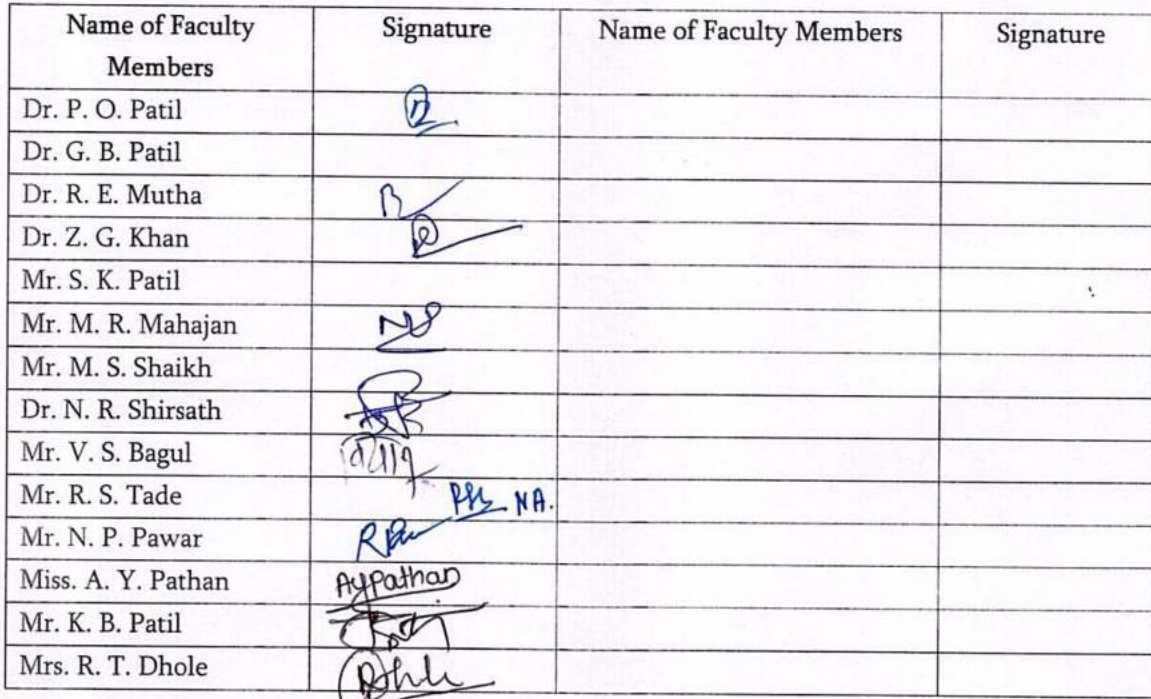 Name of Faculty Members Signature Name of Faculty Members Signature
Dr. P. O. Patil
Dr. G. B. Patil
Dr. R. E. Mutha
Dr. Z. G. Khan
Mr. S. K. Patil
Mr. M. R. Mahajan
Mr. M. S. Shaikh
Dr. N. R. Shirsath
Mr. V. S. Bagul
Mr. R. S. Tade NA.
Mr. N. P. Pawar
Miss. A. Y. Pathan AyPathan
Mr. K. B. Patil
Mrs. R. T. Dhole